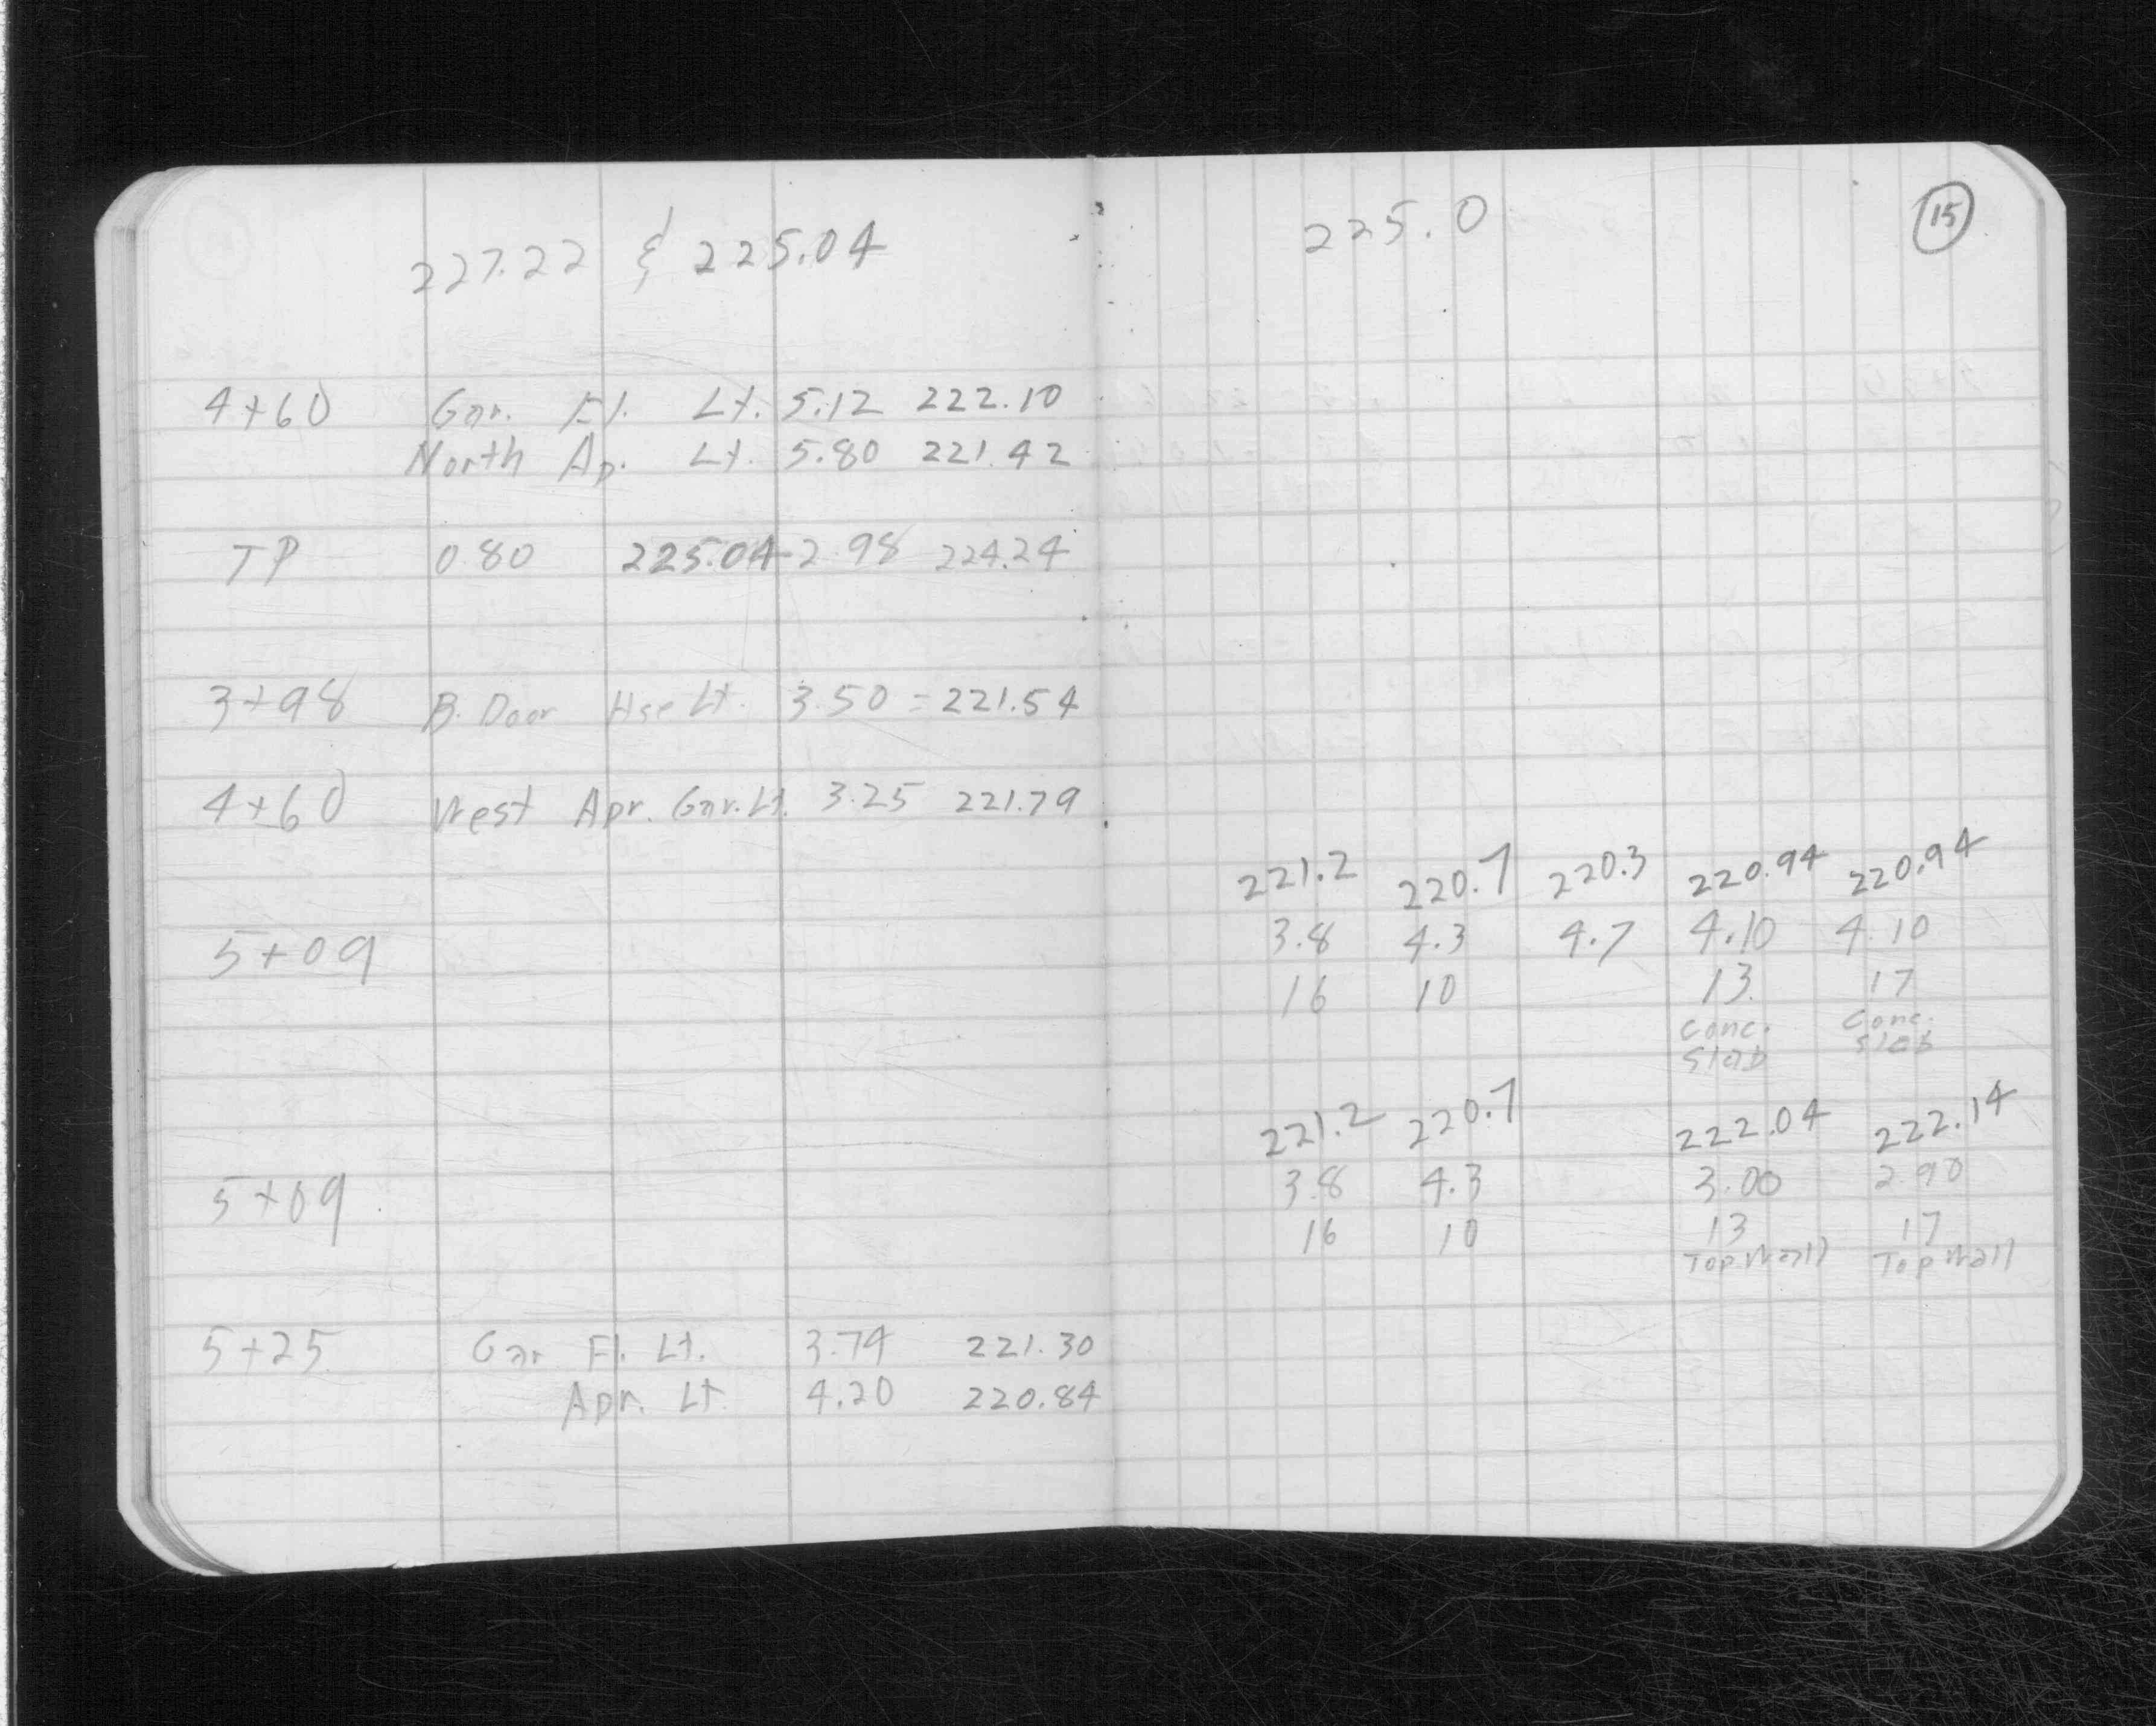 227.22 & 225.04
4+60 Gar. Fl. Lt. 5.12 222.10
North Ap. Lt. 5.80 221.42
TP 0.80 225.04 2.98 224.24
3+98 B. Door Hse Lt. 3.50 = 221.54
4+60 West Apr. Gar. Lt. 3.25 221.79
5+09
5+09
5+25 Gar Fl. Lt. 3.74 221.30
Apr. Lt. 4.20 220.84
225.0 15
221.2 220.7 220.3 220.94 220.94
3.8 4.3 4.7 4.10 4.10
16 10 13 17
Conc. Conc.
Slab Slab
221.2 220.7 222.04 222.14
3.8 4.3 3.00 2.90
16 10 13 17
Top Wall Top Wall